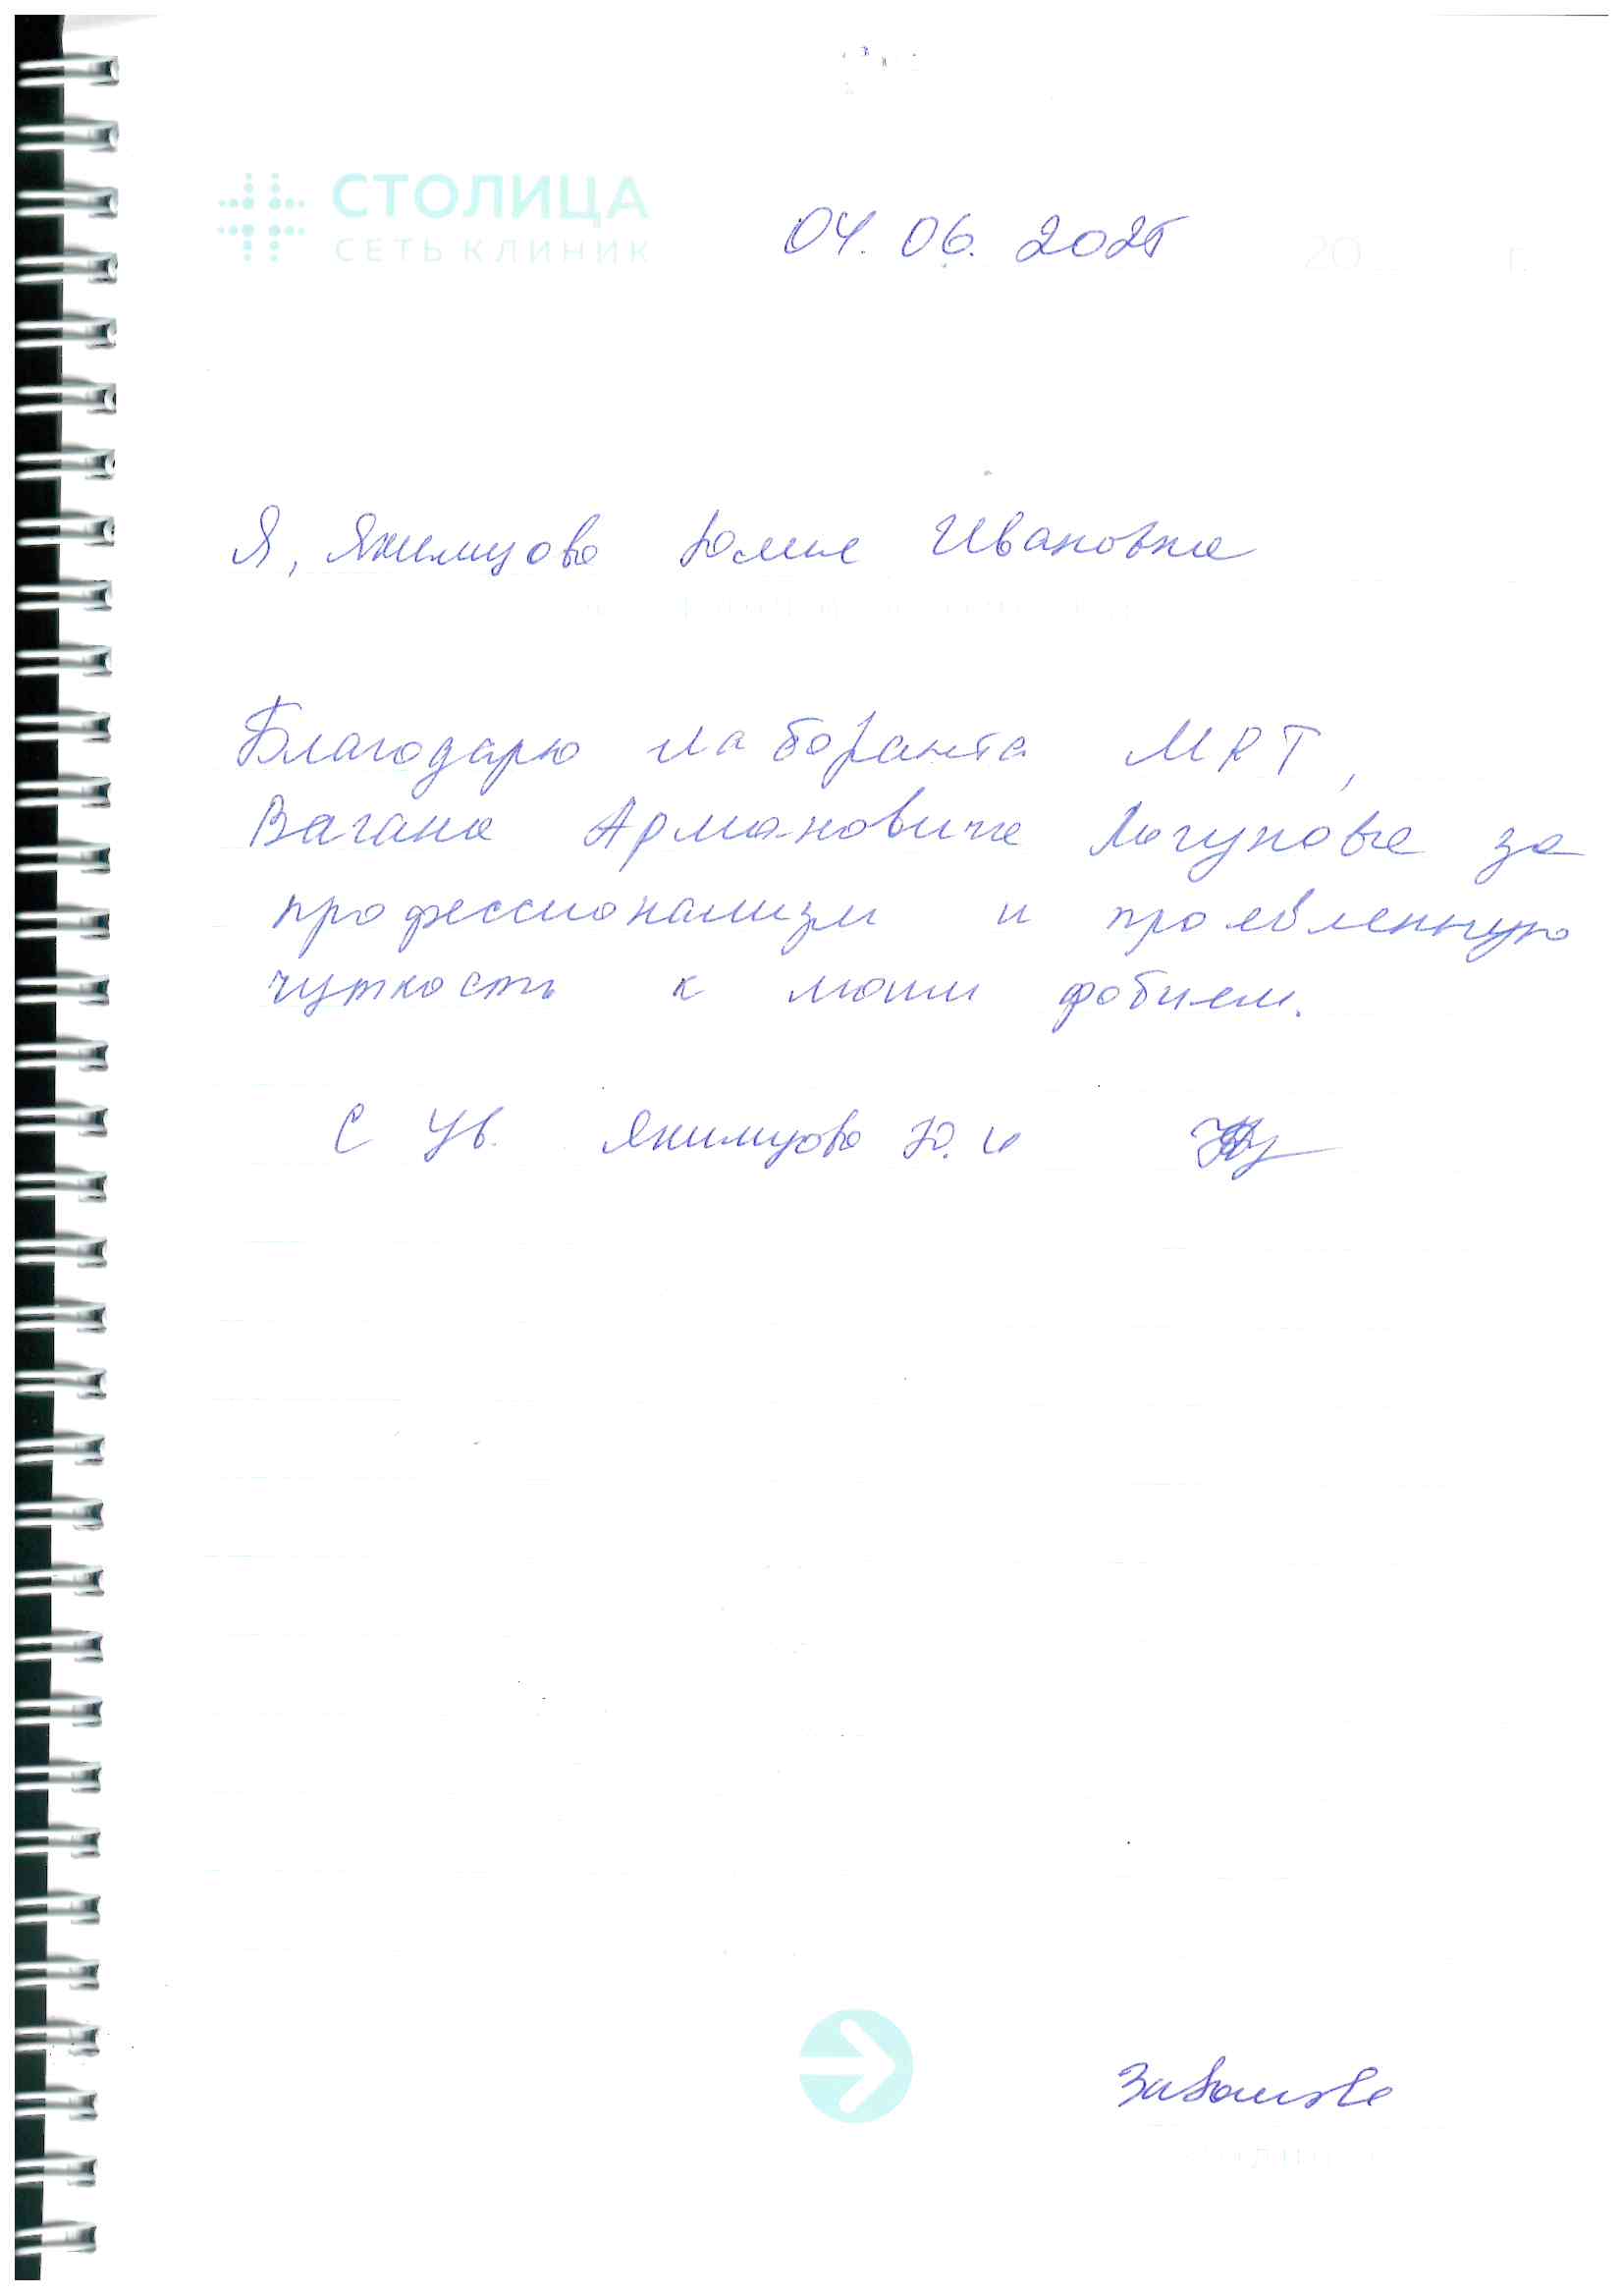 СТОЛИЦА
СЕТЬ КЛИНИК
04.06.2025
20 г.
Я, Якимцова Юлия Ивановна
Благодарю лаборанта МRТ,
Вагана Армановича Логунова за
профессионализм и проявленную
чуткость к моим фобиям.
С Ув. Якимцова Ю.И